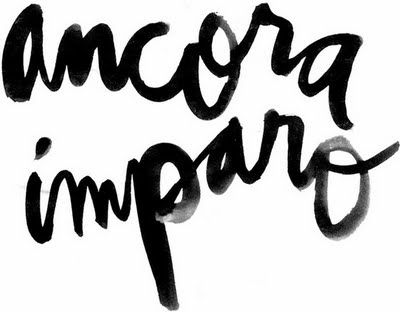 ancora
imparo